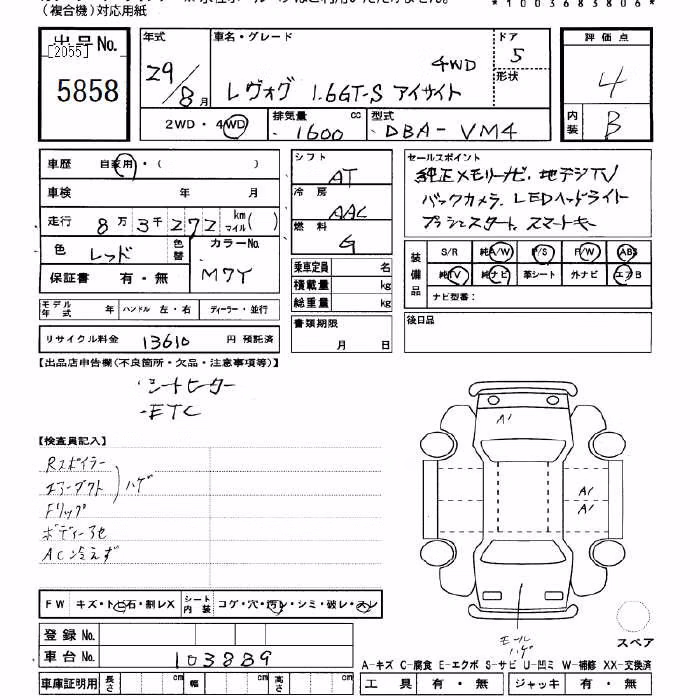 （複合機）対応用紙
*1003683806*
出品No.
[2055]
5858
年式
29/8月
車名・グレード
4WD
レヴォグ 1.6GT-S アイサイト
ドア
5
形状
2WD・4WD
排気量
1600 cc
型式
DBA-VM4
評価点
4
内装
B
車歴 自家用・( )
車検 年 月
走行 8万3千272 km マイル( )
色 レッド 色替
カラーNo.
M7Y
保証書 有・無
モデル年式 年 ハンドル 左・右 ディーラー・並行
リサイクル料金 13610 円 預託済
シフト
AT
冷房
AAC
燃料
G
乗車定員 名
積載量 kg
総重量 kg
書類期限
月 日
セールスポイント
純正メモリーナビ、地デジTV
バックカメラ、LEDヘッドライト
プッシュスタート、スマートキー
装備品
S/R 純A/W P/S P/W ABS
純TV 純ナビ 革シート 外ナビ エアB
ナビ型番：
後日品
【出品店申告欄（不良箇所・欠品・注意事項等）】
・シートヒーター
・ETC
【検査員記入】
Rスポイラー
エアーダクト ハゲ
Fリップ
ボディー
AC冷えず
A1
A1
A1
モール
ハゲ
スペア
FW キズ・トビ石・割レX
シート内装 コゲ・穴・汚レ・シミ・破レ・スレ
登録No.
車台No. 103889
車庫証明用 長さ cm 幅 cm 高さ cm
A-キズ C-腐食 E-エクボ S-サビ U-凹ミ W-補修 XX-交換済
工具 有・無 ジャッキ 有・無